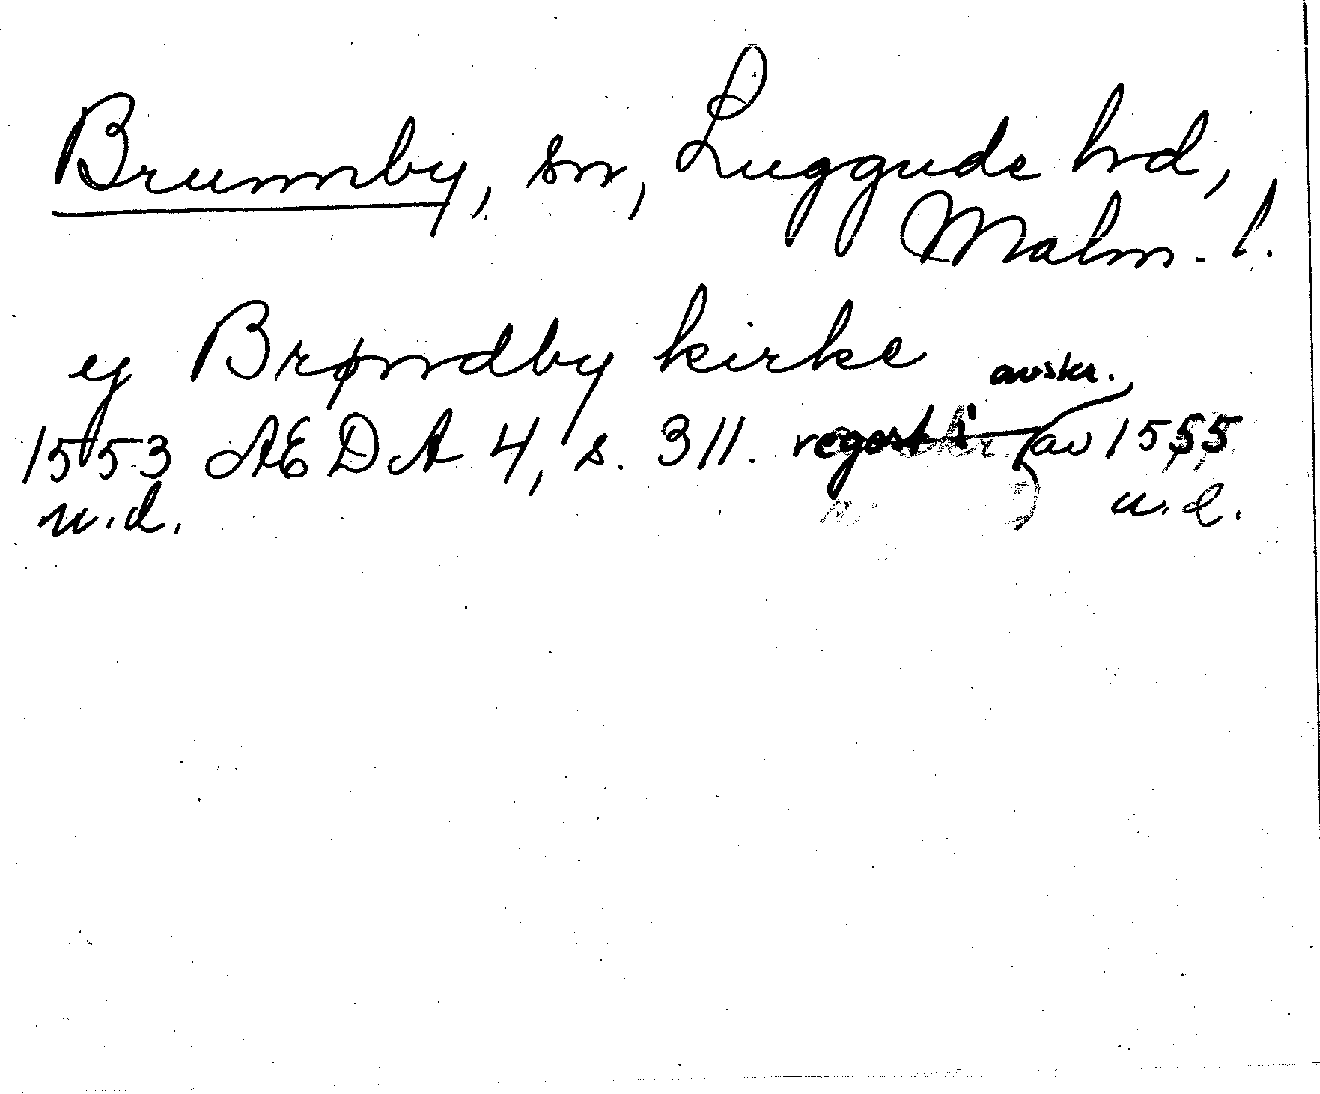 Brunnby, sn, Luggude hd,
Malm. l.
ej Brøndby kirke
1553 AEDA 4, s. 311. regest i avskr. av 1555
u.d. u.d.